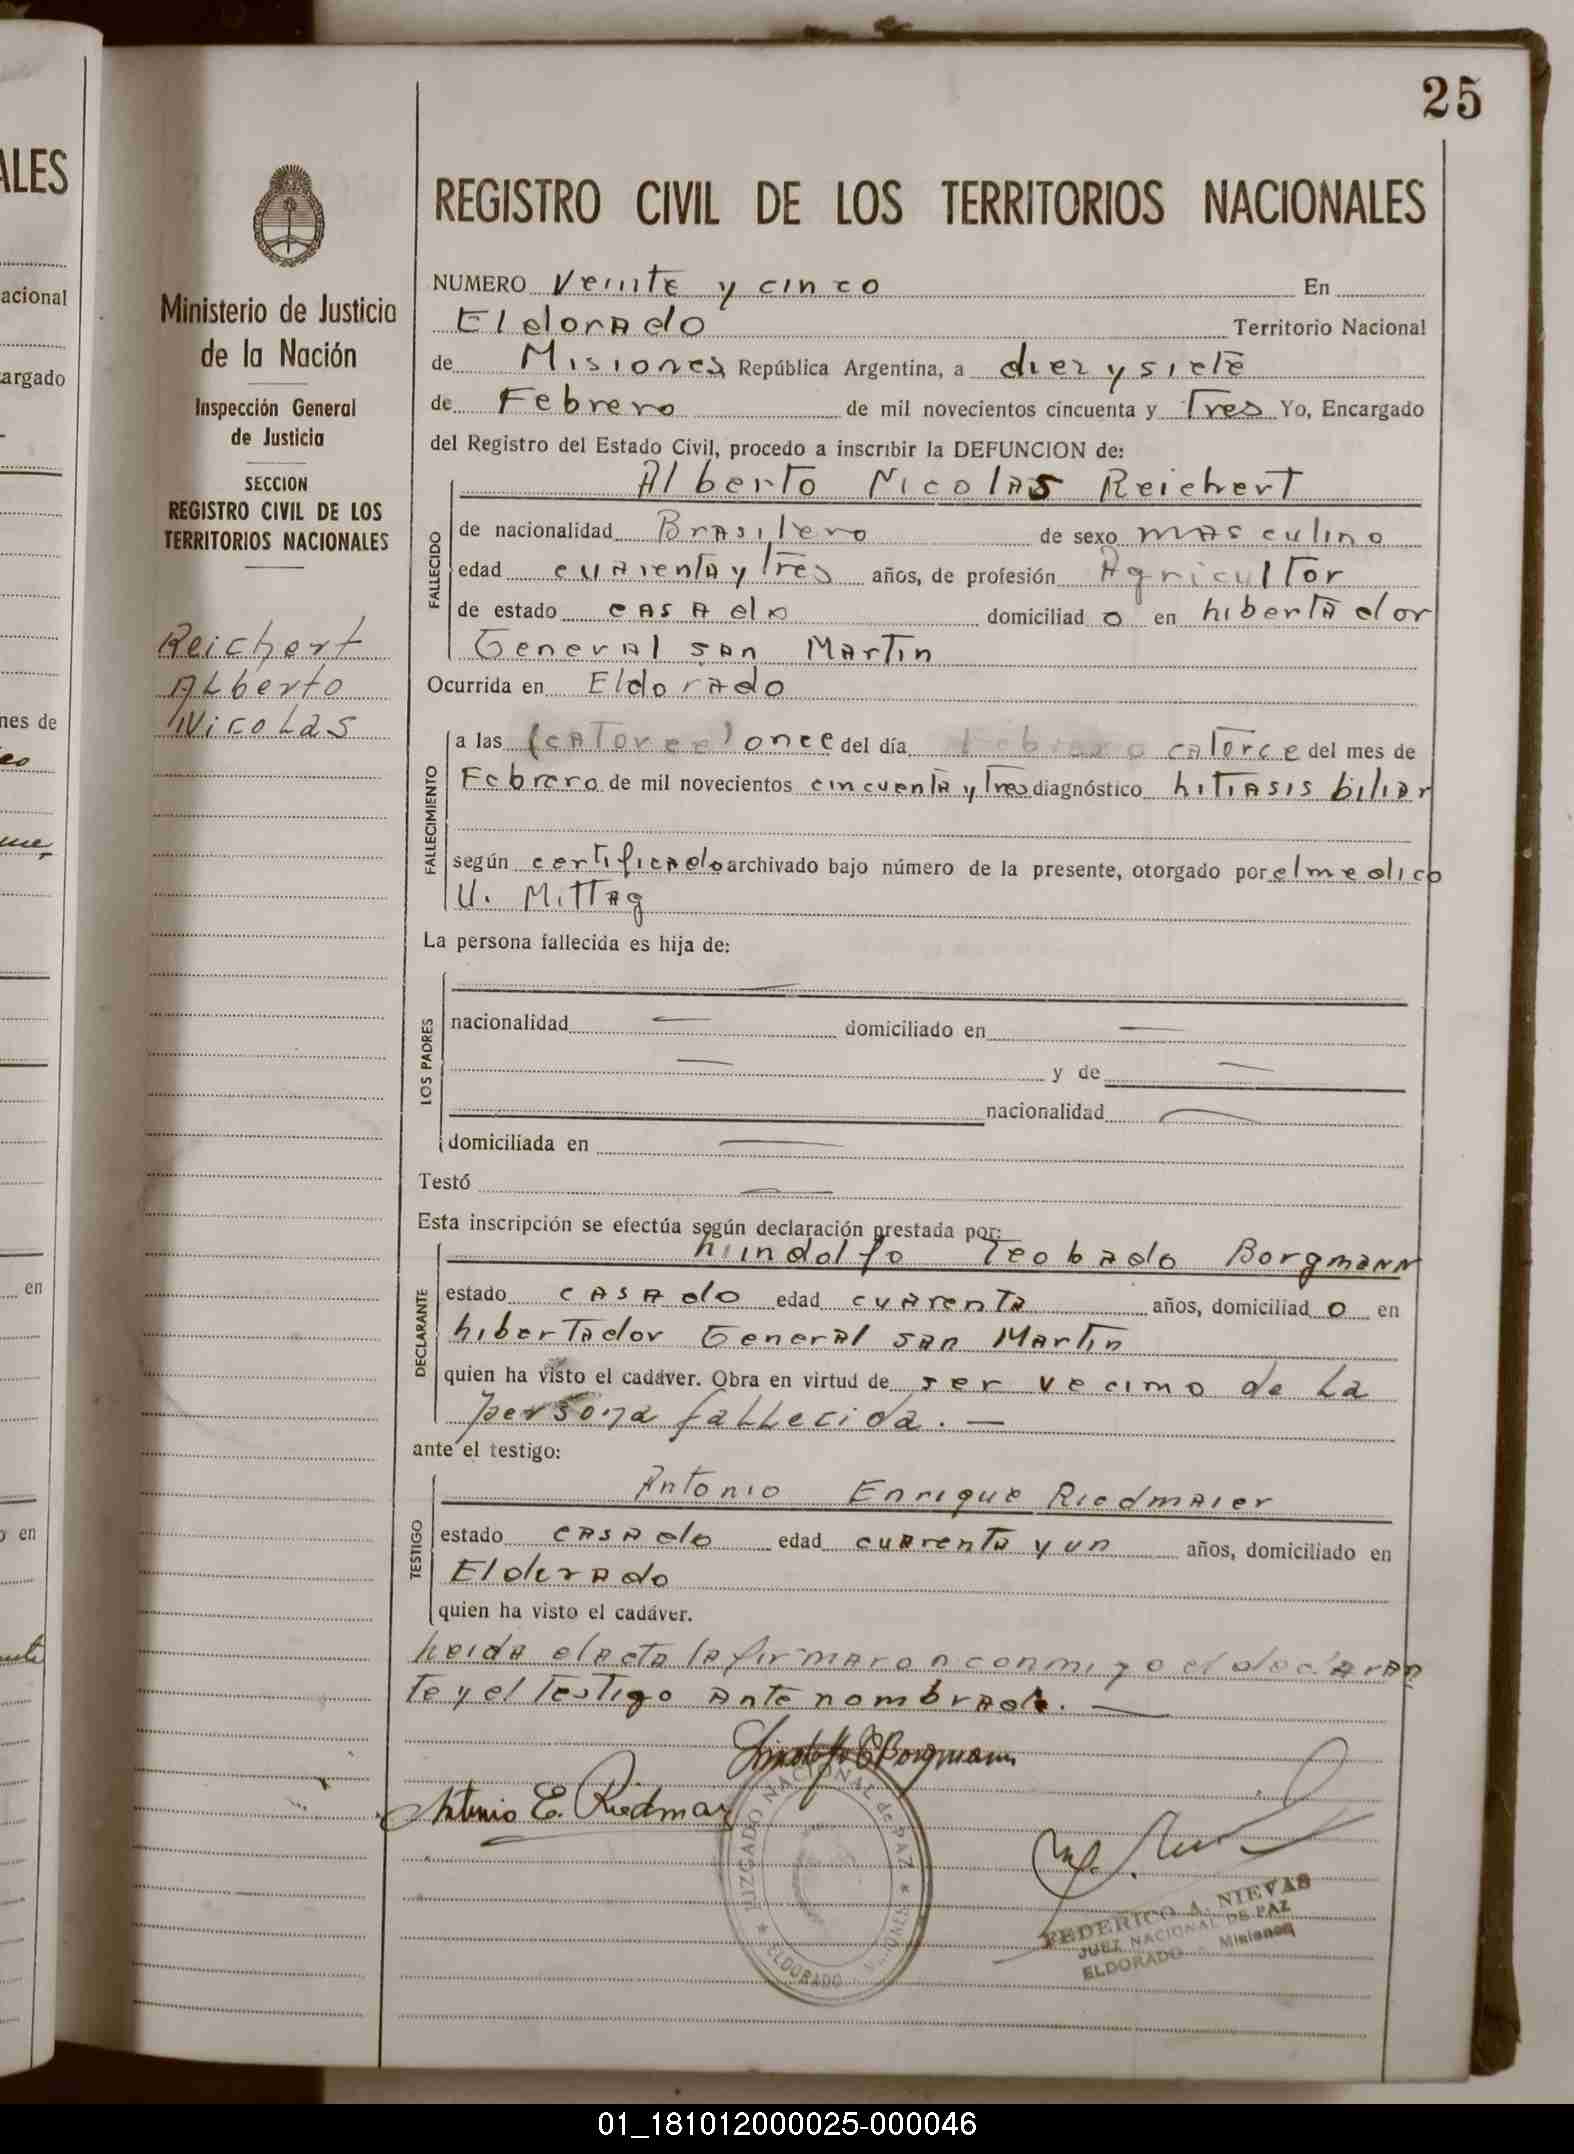 25
ALES
REGISTRO CIVIL DE LOS TERRITORIOS NACIONALES
Ministerio de Justicia
de la Nación
Inspección General
de Justicia
SECCION
REGISTRO CIVIL DE LOS
TERRITORIOS NACIONALES
Reichert
Alberto
Nicolas
acional
argado
nes de
en
en
NUMERO Veinte y cinco En
Eldorado Territorio Nacional
de Misiones República Argentina, a diez y siete
de Febrero de mil novecientos cincuenta y Tres Yo, Encargado
del Registro del Estado Civil, procedo a inscribir la DEFUNCION de:
Alberto Nicolas Reichert
FALLECIDO
de nacionalidad Brasilero de sexo masculino
edad cuarenta y Tres años, de profesión Agricultor
de estado casado domiciliado en Libertador
General san Martin
Ocurrida en Eldorado
FALLECIMIENTO
a las (catorce) once del día Febrero catorce del mes de
Febrero de mil novecientos cincuenta y Tres diagnóstico Litiasis biliar
según certificado archivado bajo número de la presente, otorgado por el medico
U. Mittag
La persona fallecida es hija de:
LOS PADRES
nacionalidad — domiciliado en —
— y de —
nacionalidad —
domiciliada en —
Testó —
Esta inscripción se efectúa según declaración prestada por:
Lindolfo Teobado Borgmann
DECLARANTE
estado casado edad cuarenta años, domiciliado en
Libertador General san Martin
quien ha visto el cadáver. Obra en virtud de ser vecino de La
persona fallecida. —
ante el testigo:
Antonio Enrique Riedmaier
TESTIGO
estado casado edad cuarenta y un años, domiciliado en
Eldorado
quien ha visto el cadáver.
Leida el acta la firmaron conmigo el declaran
te y el Testigo ante nombrado. —
Lindolfo T Borgmann
Antonio E. Riedmaier
JUZGADO NACIONAL de PAZ
ELDORADO MISIONES
FEDERICO A. NIEVAS
JUEZ NACIONAL DE PAZ
ELDORADO - Misiones
01_181012000025-000046